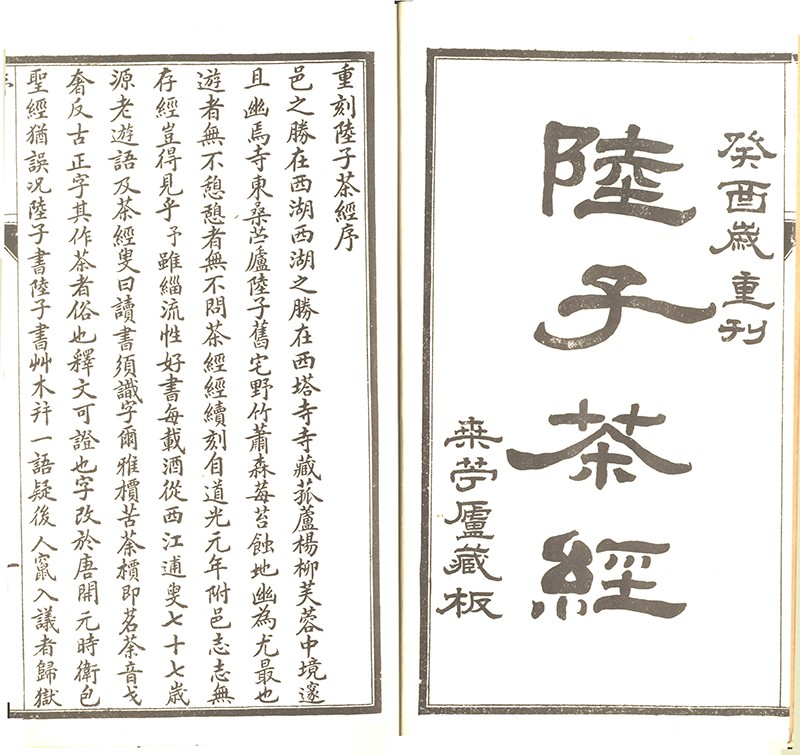 癸酉歲重刊
陸子茶經
桒苧廬藏板
重刻陸子茶經序
邑之勝在西湖西湖之勝在西塔寺寺藏菰蘆楊柳芙蓉中境邃
且幽焉寺東桑苎廬陸子舊宅野竹蕭森莓苔蝕地幽為尤最也
遊者無不憩憩者無不問茶經經續刻自道光元年附邑志志無
存經豈得見乎予雖緇流性好書每載酒從西江逋叟七十七歲
源老遊語及茶經叟曰讀書須識字爾雅檟苦荼檟即茗荼音戈
奢反古正字其作茶者俗也釋文可證也字改於唐開元時衛包
聖經猶誤况陸子書陸子書艸木幷一語疑後人竄入議者歸獄